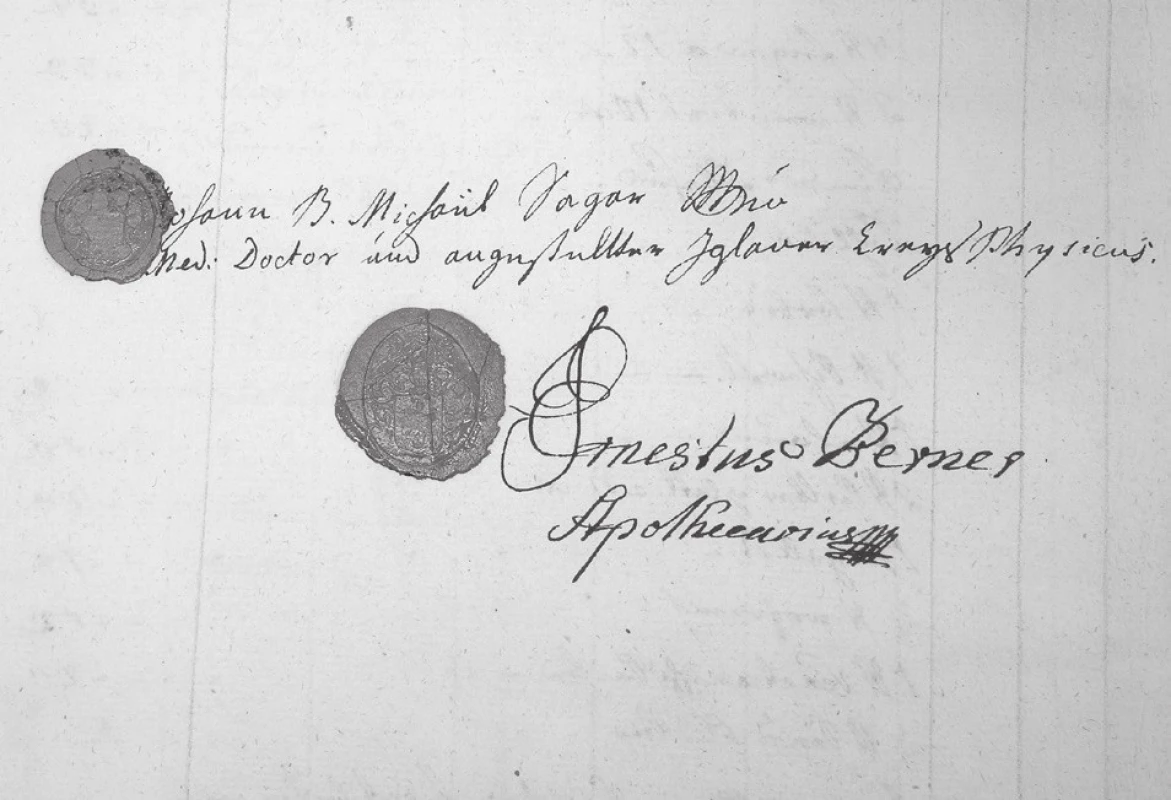 Johann B. Michael Sagar Mpia
Med: Doctor und angestellter Iglauer Kreys Physicus.
Ernestus Berner
Apothecarius